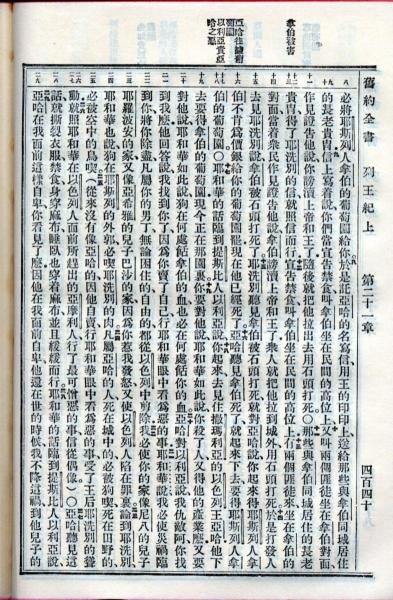 舊約全書 列王紀上 第二十一章 四百四十
拿伯被害
亞哈往據葡萄園
以利亞責亞哈之罪
必將耶斯列人拿伯的葡萄園給你於是託亞哈的名寫信用王的印印上送給那些與拿伯同城居住
的長老貴冑信上寫着說你們當宣告禁食叫拿伯坐在民間的高位上又叫兩個匪徒坐在拿伯對面
作見證告他說你謗瀆上帝和王了隨後就把他拉出去用石頭打死○那些與拿伯同城居住的長老
貴冑得了耶洗別的信就照信而行宣告禁食叫拿伯坐在民間的高位上有兩個匪徒來坐在拿伯的
對面當着衆民作見證告他說拿伯謗瀆上帝和王了衆人就把他拉到城外用石頭打死於是打發人
去見耶洗別說拿伯被石頭打死了耶洗別聽見拿伯被石頭打死就對亞哈說你起來得耶斯列人拿
伯不肯爲價銀給你的葡萄園罷現在他已經死了亞哈聽見拿伯死了就起來下去要得耶斯列人拿
伯的葡萄園○耶和華的話臨到提斯比人以利亞說你起來去見住撒瑪利亞的以色列王亞哈他下
去要得拿伯的葡萄園現今正在那園裏你要對他說耶和華如此說你殺了人又得他的產業麼又要
對他說耶和華如此說狗在何處餂拿伯的血也必在何處餂你的血亞哈對以利亞說我仇敵阿你找
到我麼他回答說我找到你了因爲你賣了自己行耶和華眼中看爲惡的事耶和華說我必使災禍臨
到你將你除盡凡屬你的男丁無論困住的自由的都從以色列中剪除我必使你的家像尼八的兒子
耶羅波安的家又像亞希雅的兒子巴沙的家因爲你惹我發怒又使以色列人陷在罪裏論到耶洗別
耶和華也說狗在耶斯列的外郭必喫耶洗別的肉凡屬亞哈的人死在城中的必被狗喫死在田野的
必被空中的鳥喫(從來沒有像亞哈的因他自賣行耶和華眼中看爲惡的事受了王后耶洗別的聳
動就照耶和華在以色列人面前所趕出的亞摩利人行了最可憎惡的事信從偶像)○亞哈聽見這
話就撕裂衣服禁食身穿麻布睡臥也穿着麻布並且緩緩而行耶和華的話臨到提斯比人以利亞說
亞哈在我面前這樣自卑你看見了麼因他在我面前自卑他還在世的時候我不降這禍到他兒子的